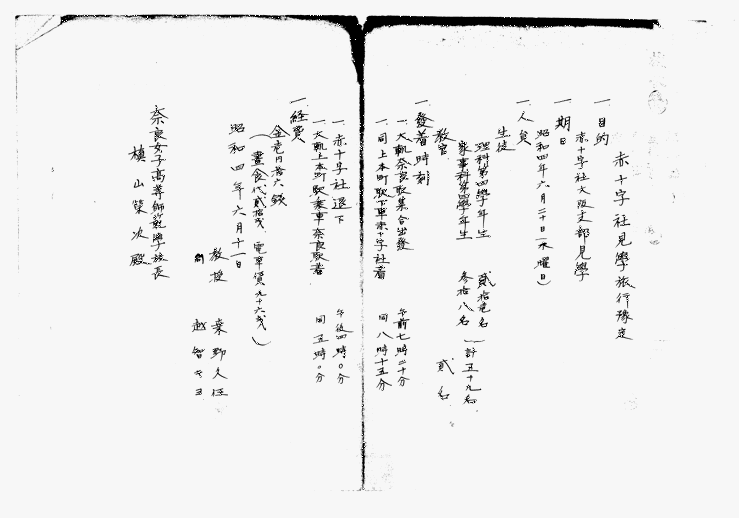 赤十字社見學旅行豫定
一、目的
赤十字社大阪支部見學
一、期日
昭和四年六月二十日(水曜日)
一、人員
生徒
理科第四學年生 貳拾壱名
家事科第四學年生 参拾八名
計五十九名
教官 貳名
一、發着時刻
一、大軌奈良駅集合出發 午前七時二十分
一、同上本町駅下車赤十字社着 同八時十五分
一、赤十字社退下 午後四時〇分
一、大軌上本町駅乗車奈良駅着 同五時〇分
一、経費
金壱円拾六銭
(晝食代貳拾戔、電車賃九十六戔)
昭和四年六月十一日
教授 桒野久任
越智
奈良女子高等師範學校長
槙山榮次殿